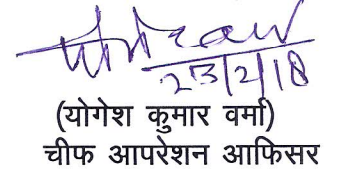 23/2/18
(योगेश कुमार वर्मा)
चीफ आपरेशन आफिसर